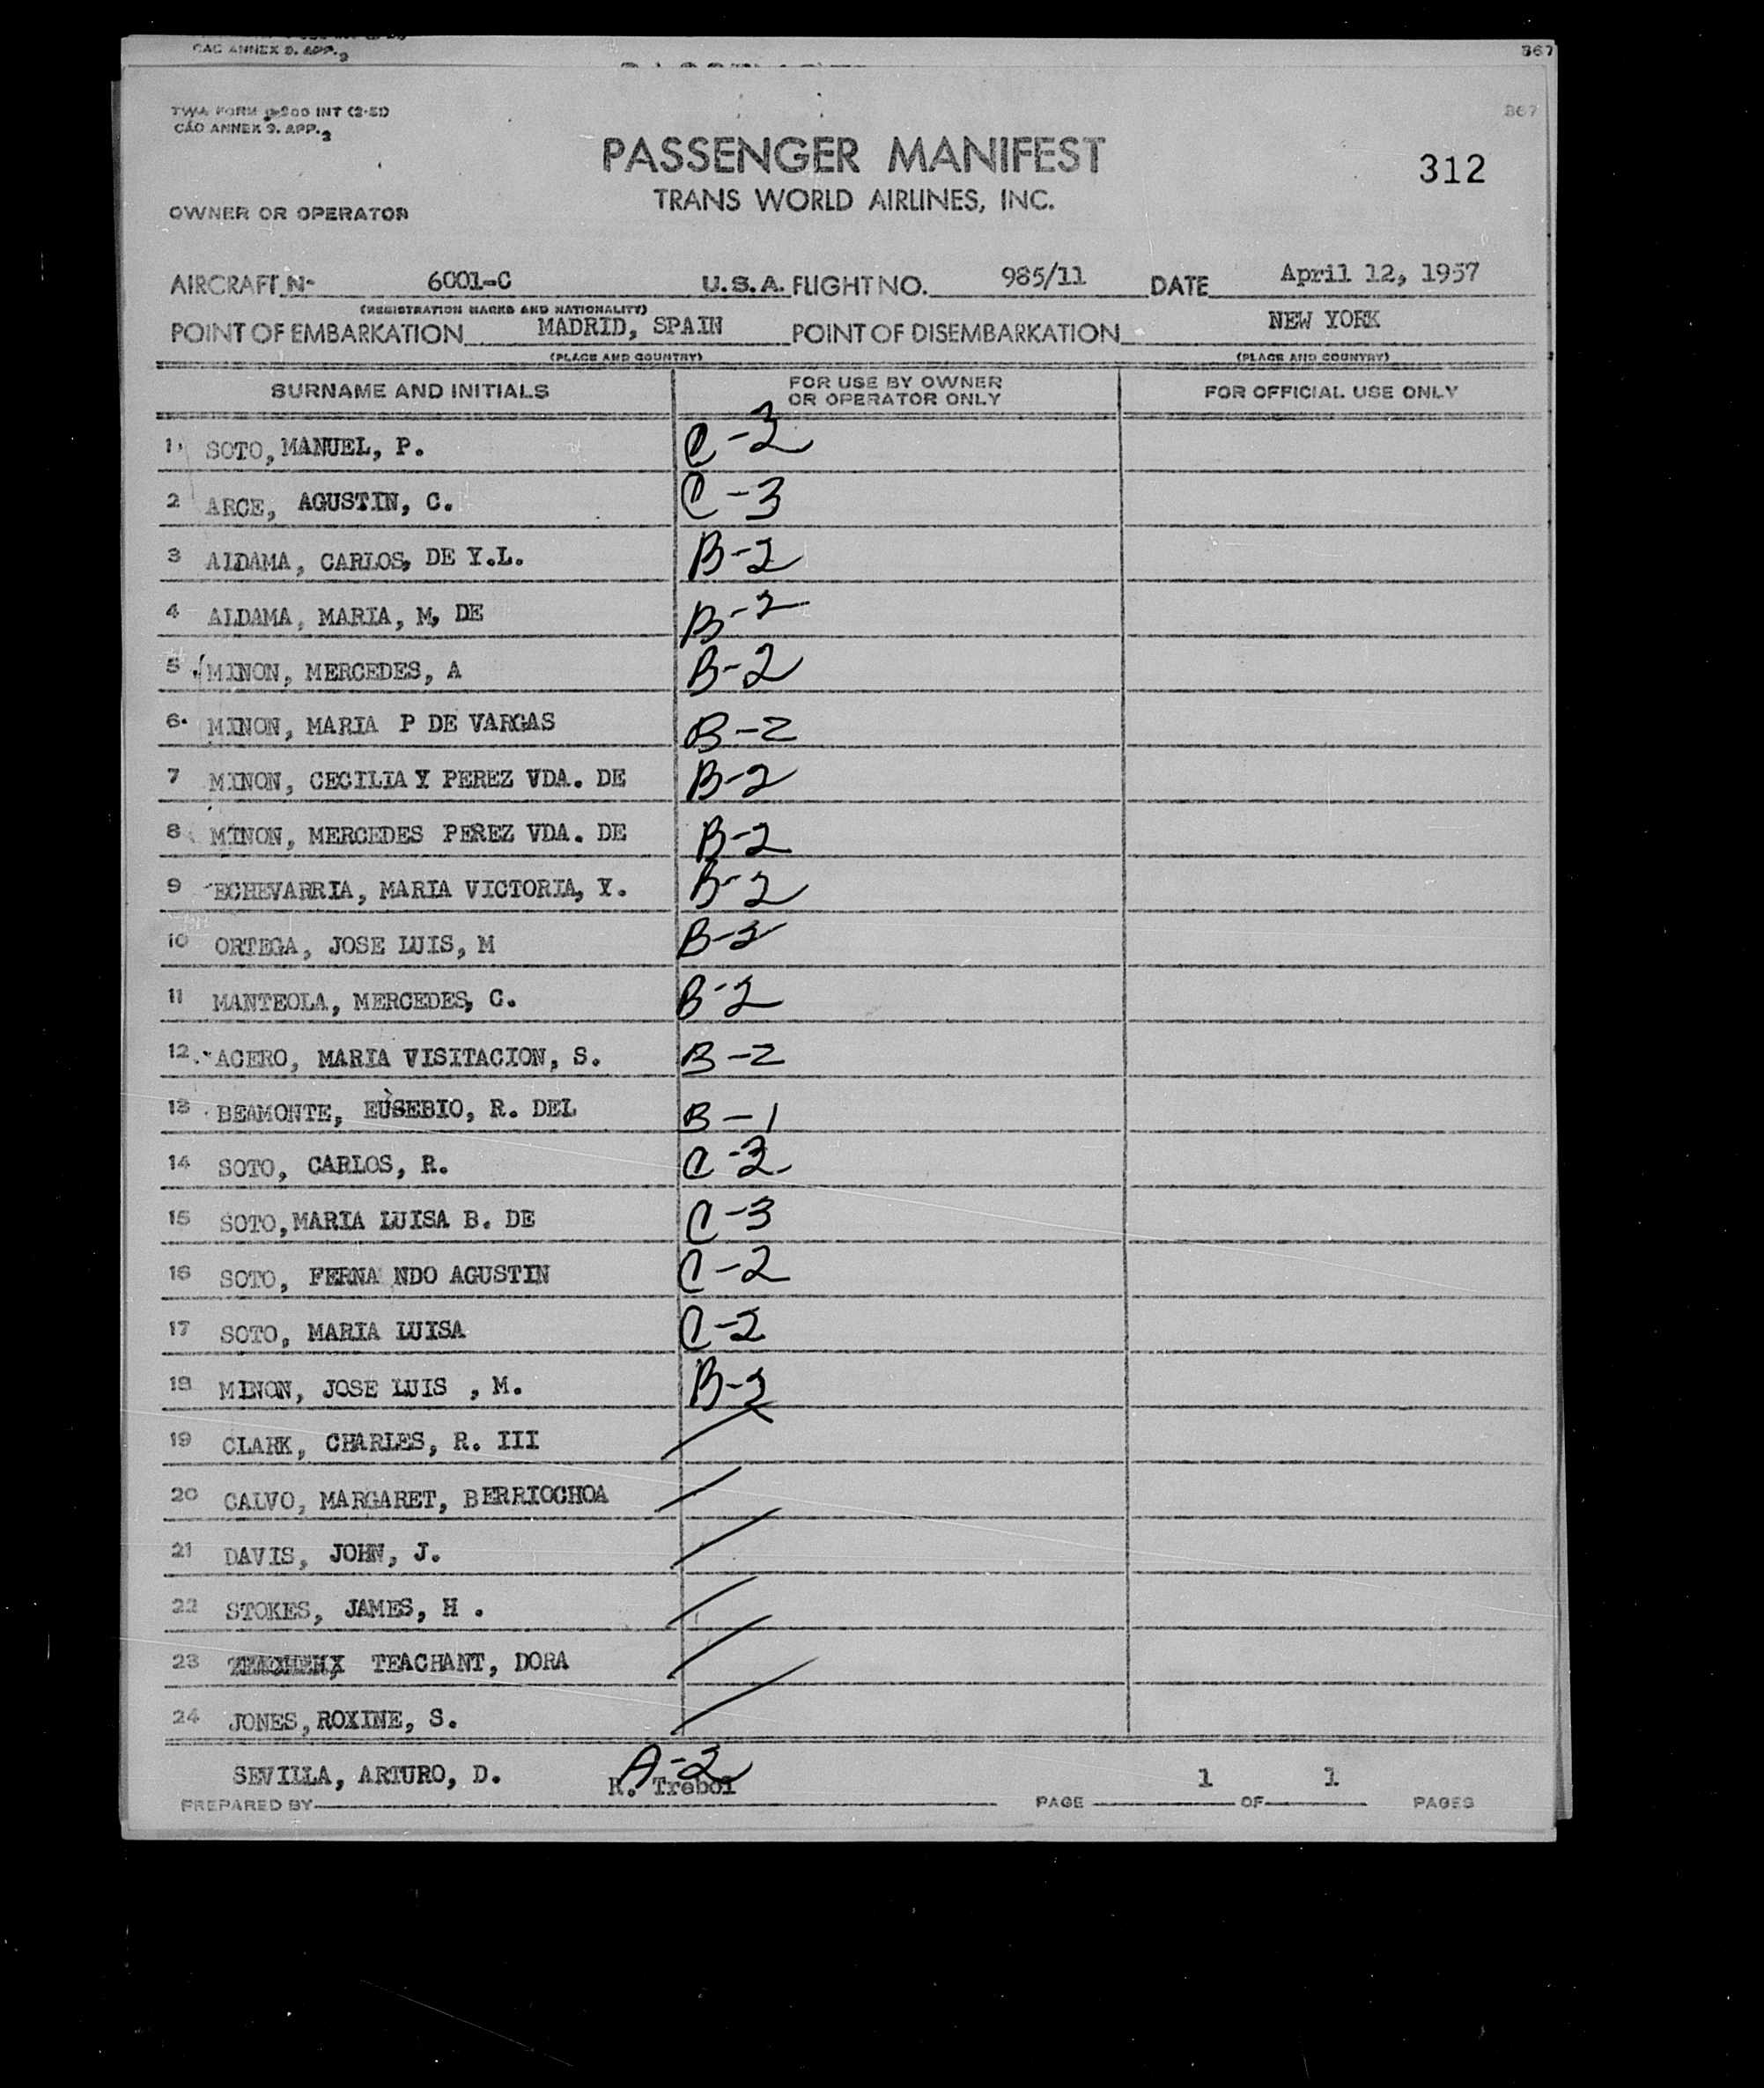 CAO ANNEX 9. APP. 9
367
TWA FORM INT (2-51)
CAO ANNEX 9. APP. 2
367
PASSENGER MANIFEST
312
TRANS WORLD AIRLINES, INC.
OWNER OR OPERATOR
AIRCRAFT No 6001-C U.S.A. FLIGHT NO. 985/11 DATE April 12, 1957
(REGISTRATION MARKS AND NATIONALITY)
POINT OF EMBARKATION MADRID, SPAIN POINT OF DISEMBARKATION NEW YORK
(PLACE AND COUNTRY) (PLACE AND COUNTRY)
SURNAME AND INITIALS FOR USE BY OWNER OR OPERATOR ONLY FOR OFFICIAL USE ONLY
1. SOTO, MANUEL, P. C-3
2 ARCE, AGUSTIN, C. C-3
3 ALDAMA, CARLOS, DE Y.L. B-2
4 ALDAMA, MARIA, M, DE B-2
5 MINON, MERCEDES, A B-2
6. MINON, MARIA P DE VARGAS B-2
7 MINON, CECILIA Y PEREZ VDA. DE B-2
8 MINON, MERCEDES PEREZ VDA. DE B-2
9 ECHEVARRIA, MARIA VICTORIA, Y. B-2
10 ORTEGA, JOSE LUIS, M B-2
11 MANTEOLA, MERCEDES, C. B-2
12. ACERO, MARIA VISITACION, S. B-2
13 BEAMONTE, EUSEBIO, R. DEL B-1
14 SOTO, CARLOS, R. C-3
15 SOTO, MARIA LUISA B. DE C-3
16 SOTO, FERNA NDO AGUSTIN C-2
17 SOTO, MARIA LUISA C-2
18 MINON, JOSE LUIS , M. B-2
19 CLARK, CHARLES, R. III
20 CALVO, MARGARET, BERRIOCHOA
21 DAVIS, JOHN, J.
22 STOKES, JAMES, H .
23 TEACHANT, DORA
24 JONES, ROXINE, S.
SEVILLA, ARTURO, D. A-2
R. Trebol 1 1
PREPARED BY PAGE OF PAGES